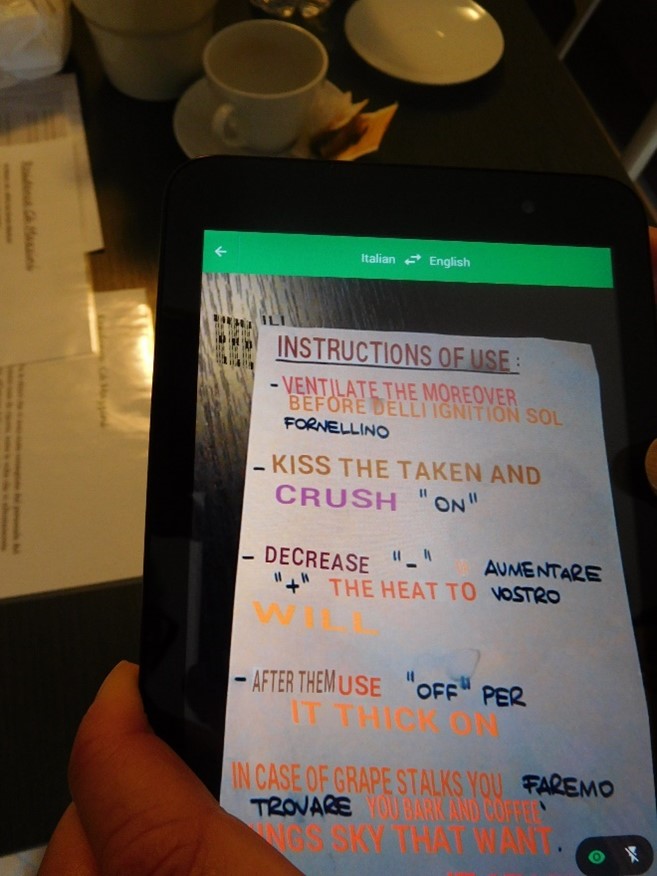 Italian English
INSTRUCTIONS OF USE :
- VENTILATE THE MOREOVER
BEFORE DELLI IGNITION SOL
FORNELLINO
- KISS THE TAKEN AND
CRUSH "ON"
- DECREASE "-" AUMENTARE
"+" THE HEAT TO VOSTRO
WILL
- AFTER THEM USE "OFF" PER
IT THICK ON
IN CASE OF GRAPE STALKS YOU FAREMO
TROVARE YOU BARK AND COFFEE'
INGS SKY THAT WANT.